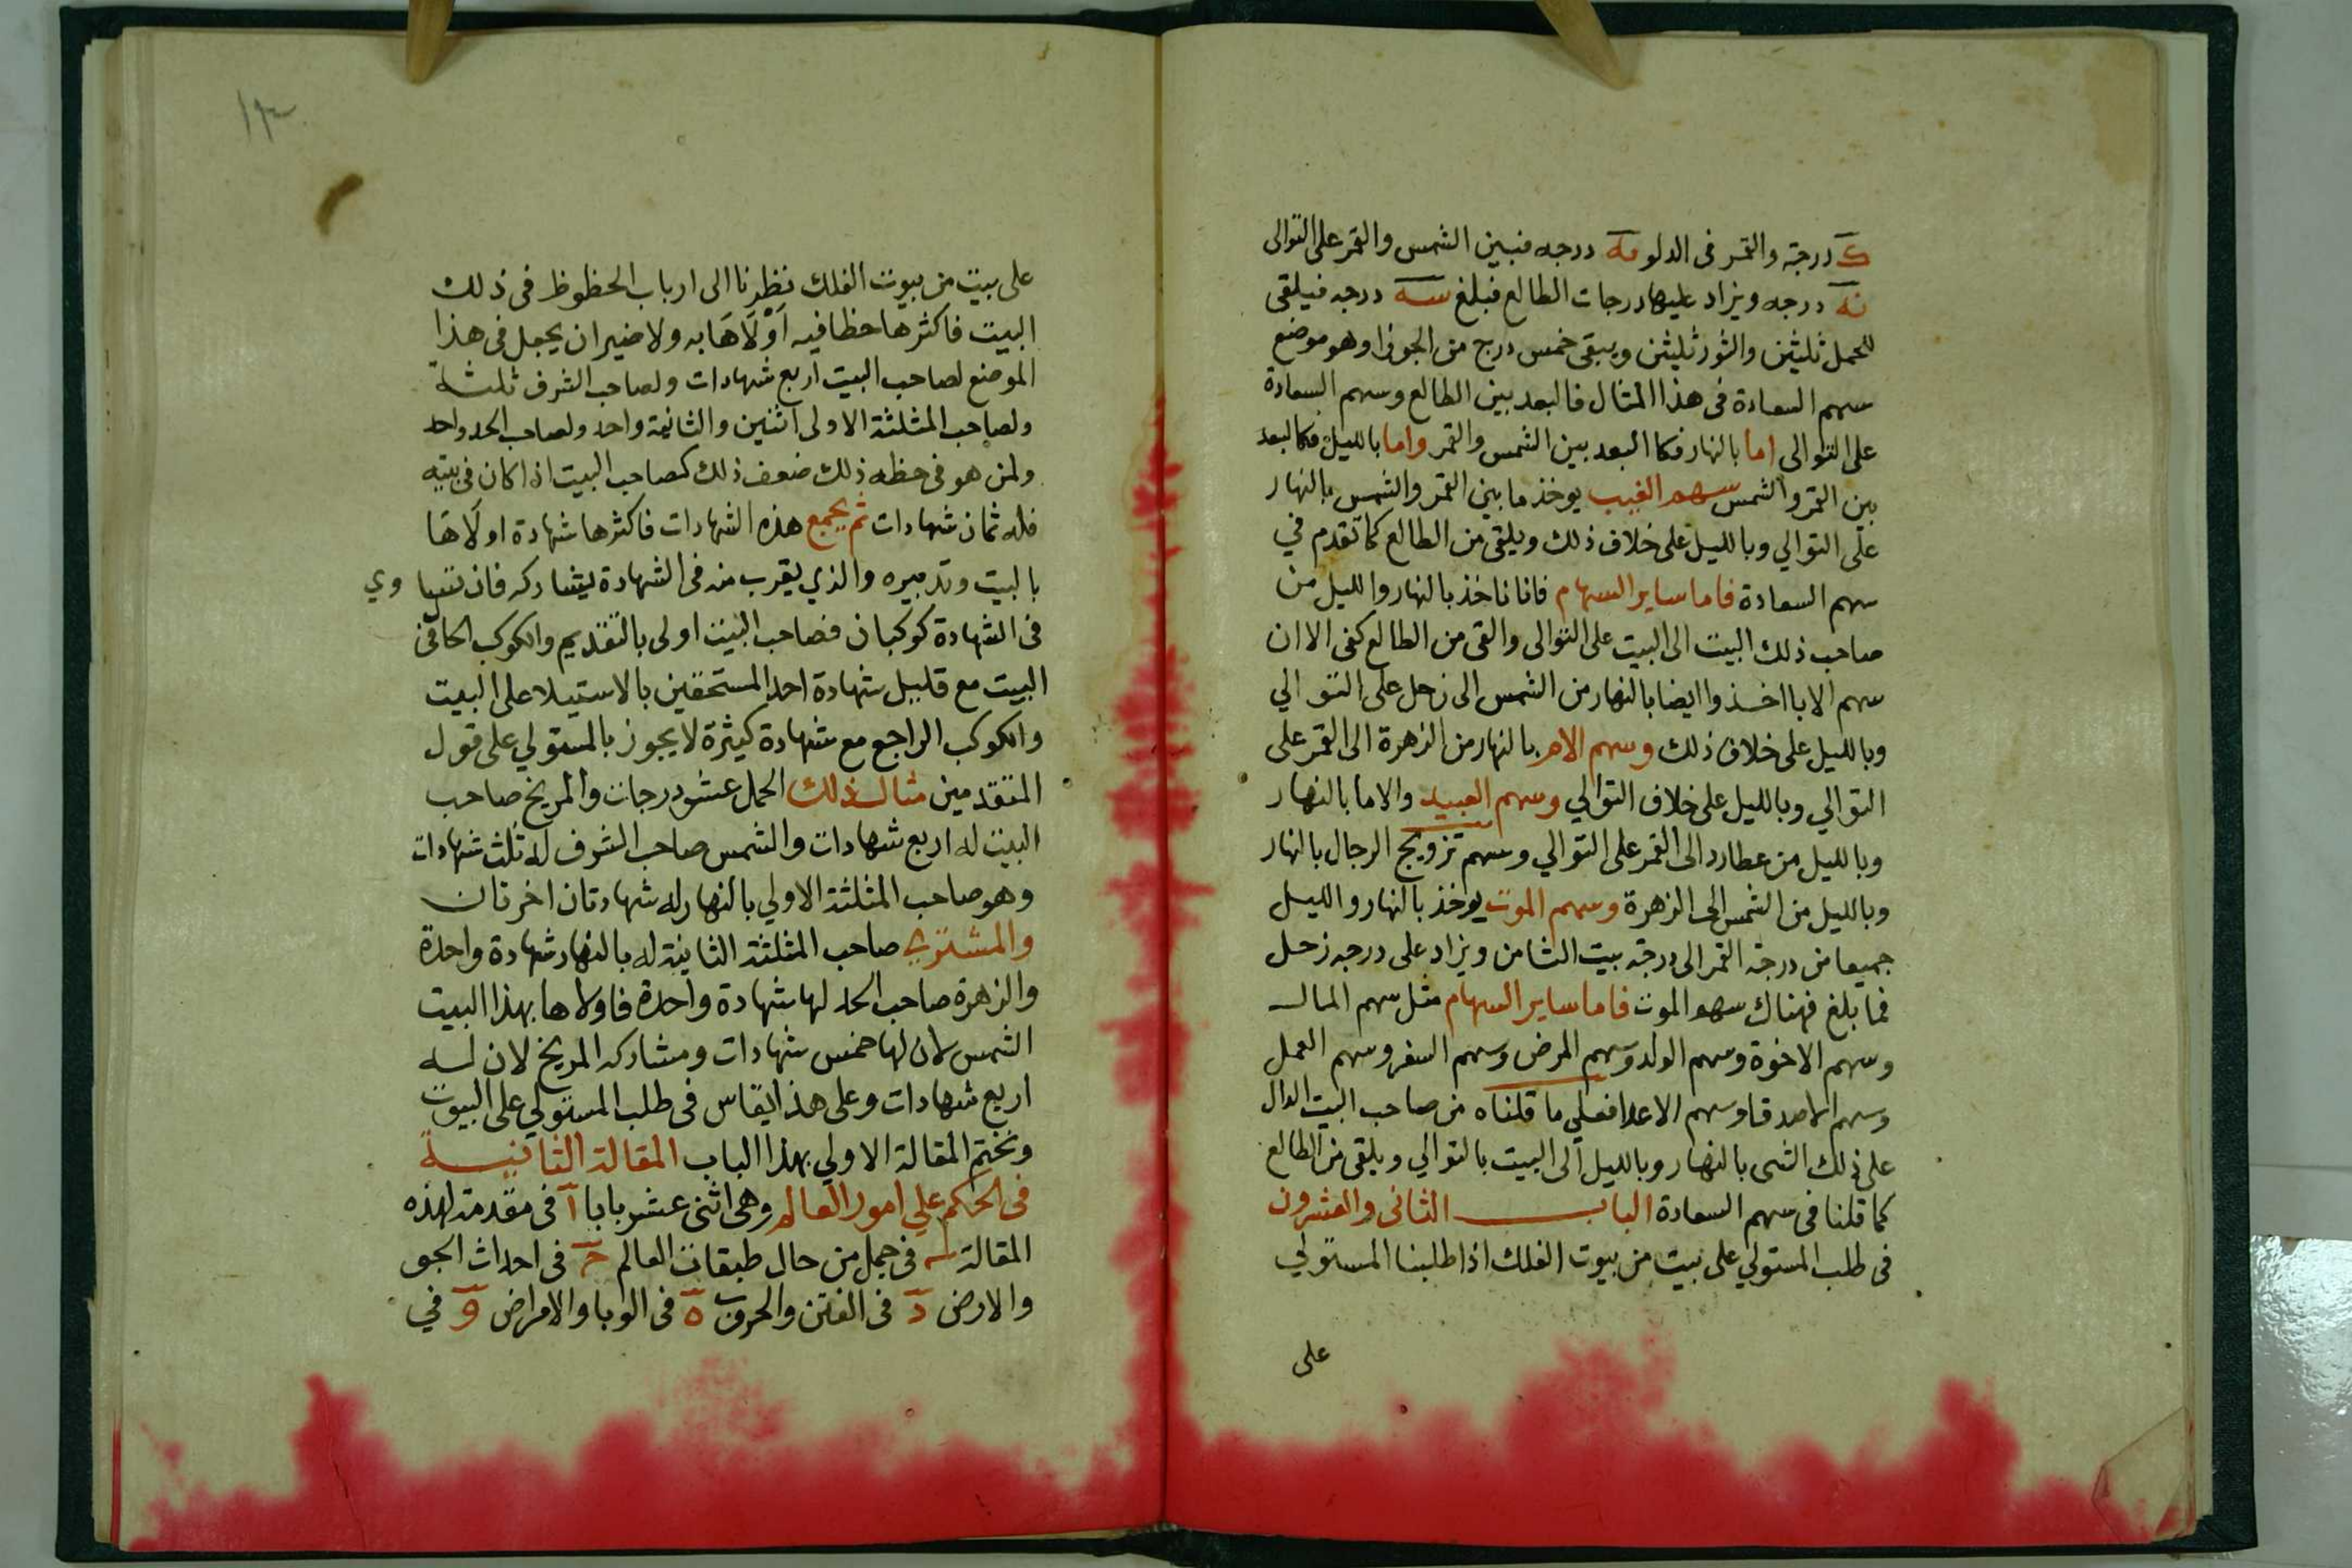 ك درجة والقمر فى الدلو مه درجه فبين الشمس والقمر على التوالى
نه درجه ويزاد عليها درجات الطالع فبلغ سه درجه فيلقى
للحمل ثليثن والثور ثليثن ويبقى خمس درج من الجوزا وهو موضع
سهم السعادة فى هذا المثال فالبعد بين الطالع وسهم السعادة
على التوالى اما بالنهار فكا البعد بين الشمس والقمر واما بالليل فكالبعد
بين القمر والشمس سهم الغيب يوخذ ما بين القمر والشمس بالنهار
على التوالي وبالليل على خلاف ذلك ويلقى من الطالع كما تقدم في
سهم السعادة فاما ساير السهام فانا ناخذ بالنهار والليل من
صاحب ذلك البيت الى البيت على التوالى والقى من الطالع كفى الا ان
سهم الابا اخذوا ايضا بالنهار من الشمس الى زحل على التوالي
وبالليل على خلاف ذلك وسهم الام بالنهار من الزهرة الى القمر على
التوالي وبالليل على خلاف التوالي وسهم العبيد والاما بالنهار
وبالليل من عطارد الى القمر على التوالي وسهم تزويج الرجال بالنهار
وبالليل من الشمس الى الزهرة وسهم الموت يوخذ بالنهار والليل
جميعا من درجة القمر الى درجة بيت الثامن ويزاد على درجه زحل
فما بلغ فهناك سهم الموت فاما ساير السهام مثل سهم المال
وسهم الاخوة وسهم الولد وسهم المرض وسهم السفر وسهم العمل
وسهم الاصدقا وسهم الاعدا فعلى ما قلناه من صاحب البيت الدال
على ذلك الشى بالنهار وبالليل الى البيت بالتوالي ويلقى من الطالع
كما قلنا فى سهم السعادة الباب الثانى والعشرون
فى طلب المستولي على بيت من بيوت الفلك اذا طلبنا المستولي
على
١٣
على بيت من بيوت الفلك نظرنا الى ارباب الحظوظ فى ذلك
البيت فاكثرها حظا فيه اَوْلَاهَا به ولا ضير ان يجعل فى هذا
الموضع لصاحب البيت اربع شهادات ولصاحب الشرف ثلثة
ولصاحب المثلثة الاولى اثنين والثانية واحد ولصاحب الحد واحد
ولمن هو فى حظه ذلك ضعف ذلك كصاحب البيت اذا كان فى بيته
فله ثمان شهادات ثم يجمع هذه الشهادات فاكثرها شهادة اولاها
بالبيت وتدبيره والذي يقرب منه فى الشهادة يشاركه فان تساوي
فى الشهادة كوكبان فصاحب البيت اولى بالتقديم والكوكب الحافى
البيت مع قليل شهادة احد المستحقين بالاستيلا على البيت
والكوكب الراجع مع شهادة كثيرة لا يجوز بالمستولي على قول
المتقدمين مثال ذلك الحمل عشر درجات والمريخ صاحب
البيت له اربع شهادات والشمس صاحب الشرف له ثلث شهادات
وهو صاحب المثلثة الاولي بالنهار له شهادتان اخرتان
والمشتري صاحب المثلثة الثانية له بالنهار شهادة واحدة
والزهرة صاحب الحد لها شهادة واحدة فاولاها بهذا البيت
الشمس لان لها خمس شهادات ومشاركه المريخ لان له
اربع شهادات وعلى هذا يقاس فى طلب المستولي على البيوت
ونختم المقالة الاولي بهذا الباب المقالة الثانية
فى الحكم علي امور العالم وهى اثنى عشر بابا آ فى مقدمة لهذه
المقالة ب فى جمل من حال طبقات العالم ج فى احداث الجو
والارض د فى الفتن والحروب ه فى الوبا والامراض و في